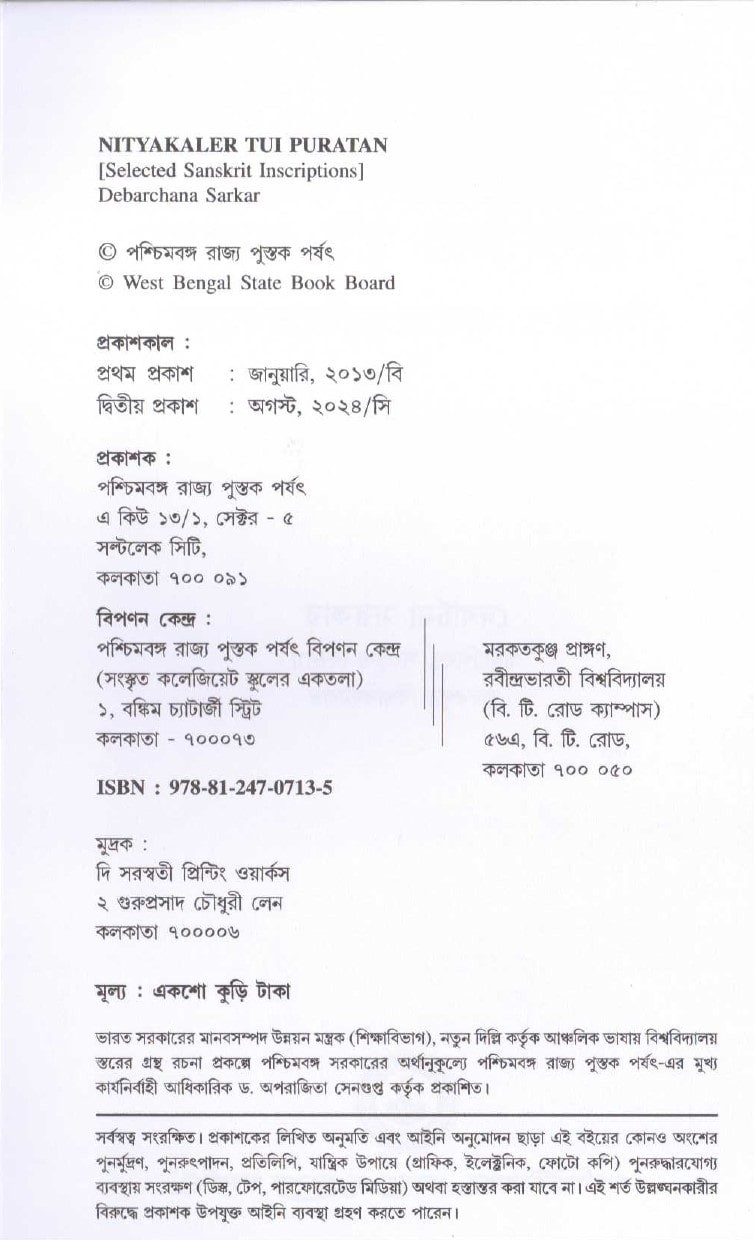 NITYAKALER TUI PURATAN
[Selected Sanskrit Inscriptions]
Debarchana Sarkar
© পশ্চিমবঙ্গ রাজ্য পুস্তক পর্ষৎ
© West Bengal State Book Board
প্রকাশকাল :
প্রথম প্রকাশ : জানুয়ারি, ২০১৩/বি
দ্বিতীয় প্রকাশ : অগস্ট, ২০২৪/সি
প্রকাশক :
পশ্চিমবঙ্গ রাজ্য পুস্তক পর্ষৎ
এ কিউ ১৩/১, সেক্টর - ৫
সল্টলেক সিটি,
কলকাতা ৭০০ ০৯১
বিপণন কেন্দ্র :
পশ্চিমবঙ্গ রাজ্য পুস্তক পর্ষৎ বিপণন কেন্দ্র
(সংস্কৃত কলেজিয়েট স্কুলের একতলা)
১, বঙ্কিম চ্যাটার্জী স্ট্রিট
কলকাতা - ৭০০০৭৩
মরকতকুঞ্জ প্রাঙ্গণ,
রবীন্দ্রভারতী বিশ্ববিদ্যালয়
(বি. টি. রোড ক্যাম্পাস)
৫৬এ, বি. টি. রোড,
কলকাতা ৭০০ ০৫০
ISBN : 978-81-247-0713-5
মুদ্রক :
দি সরস্বতী প্রিন্টিং ওয়ার্কস
২ গুরুপ্রসাদ চৌধুরী লেন
কলকাতা ৭০০০০৬
মূল্য : একশো কুড়ি টাকা
ভারত সরকারের মানবসম্পদ উন্নয়ন মন্ত্রক (শিক্ষাবিভাগ), নতুন দিল্লি কর্তৃক আঞ্চলিক ভাষায় বিশ্ববিদ্যালয়
স্তরের গ্রন্থ রচনা প্রকল্পে পশ্চিমবঙ্গ সরকারের অর্থানুকূল্যে পশ্চিমবঙ্গ রাজ্য পুস্তক পর্ষৎ-এর মুখ্য
কার্যনির্বাহী আধিকারিক ড. অপরাজিতা সেনগুপ্ত কর্তৃক প্রকাশিত।
সর্বস্বত্ব সংরক্ষিত। প্রকাশকের লিখিত অনুমতি এবং আইনি অনুমোদন ছাড়া এই বইয়ের কোনও অংশের
পুনর্মুদ্রণ, পুনরুৎপাদন, প্রতিলিপি, যান্ত্রিক উপায়ে (গ্রাফিক, ইলেক্ট্রনিক, ফোটো কপি) পুনরুদ্ধারযোগ্য
ব্যবস্থায় সংরক্ষণ (ডিস্ক, টেপ, পারফোরেটেড মিডিয়া) অথবা হস্তান্তর করা যাবে না। এই শর্ত উল্লঙ্ঘনকারীর
বিরুদ্ধে প্রকাশক উপযুক্ত আইনি ব্যবস্থা গ্রহণ করতে পারেন।